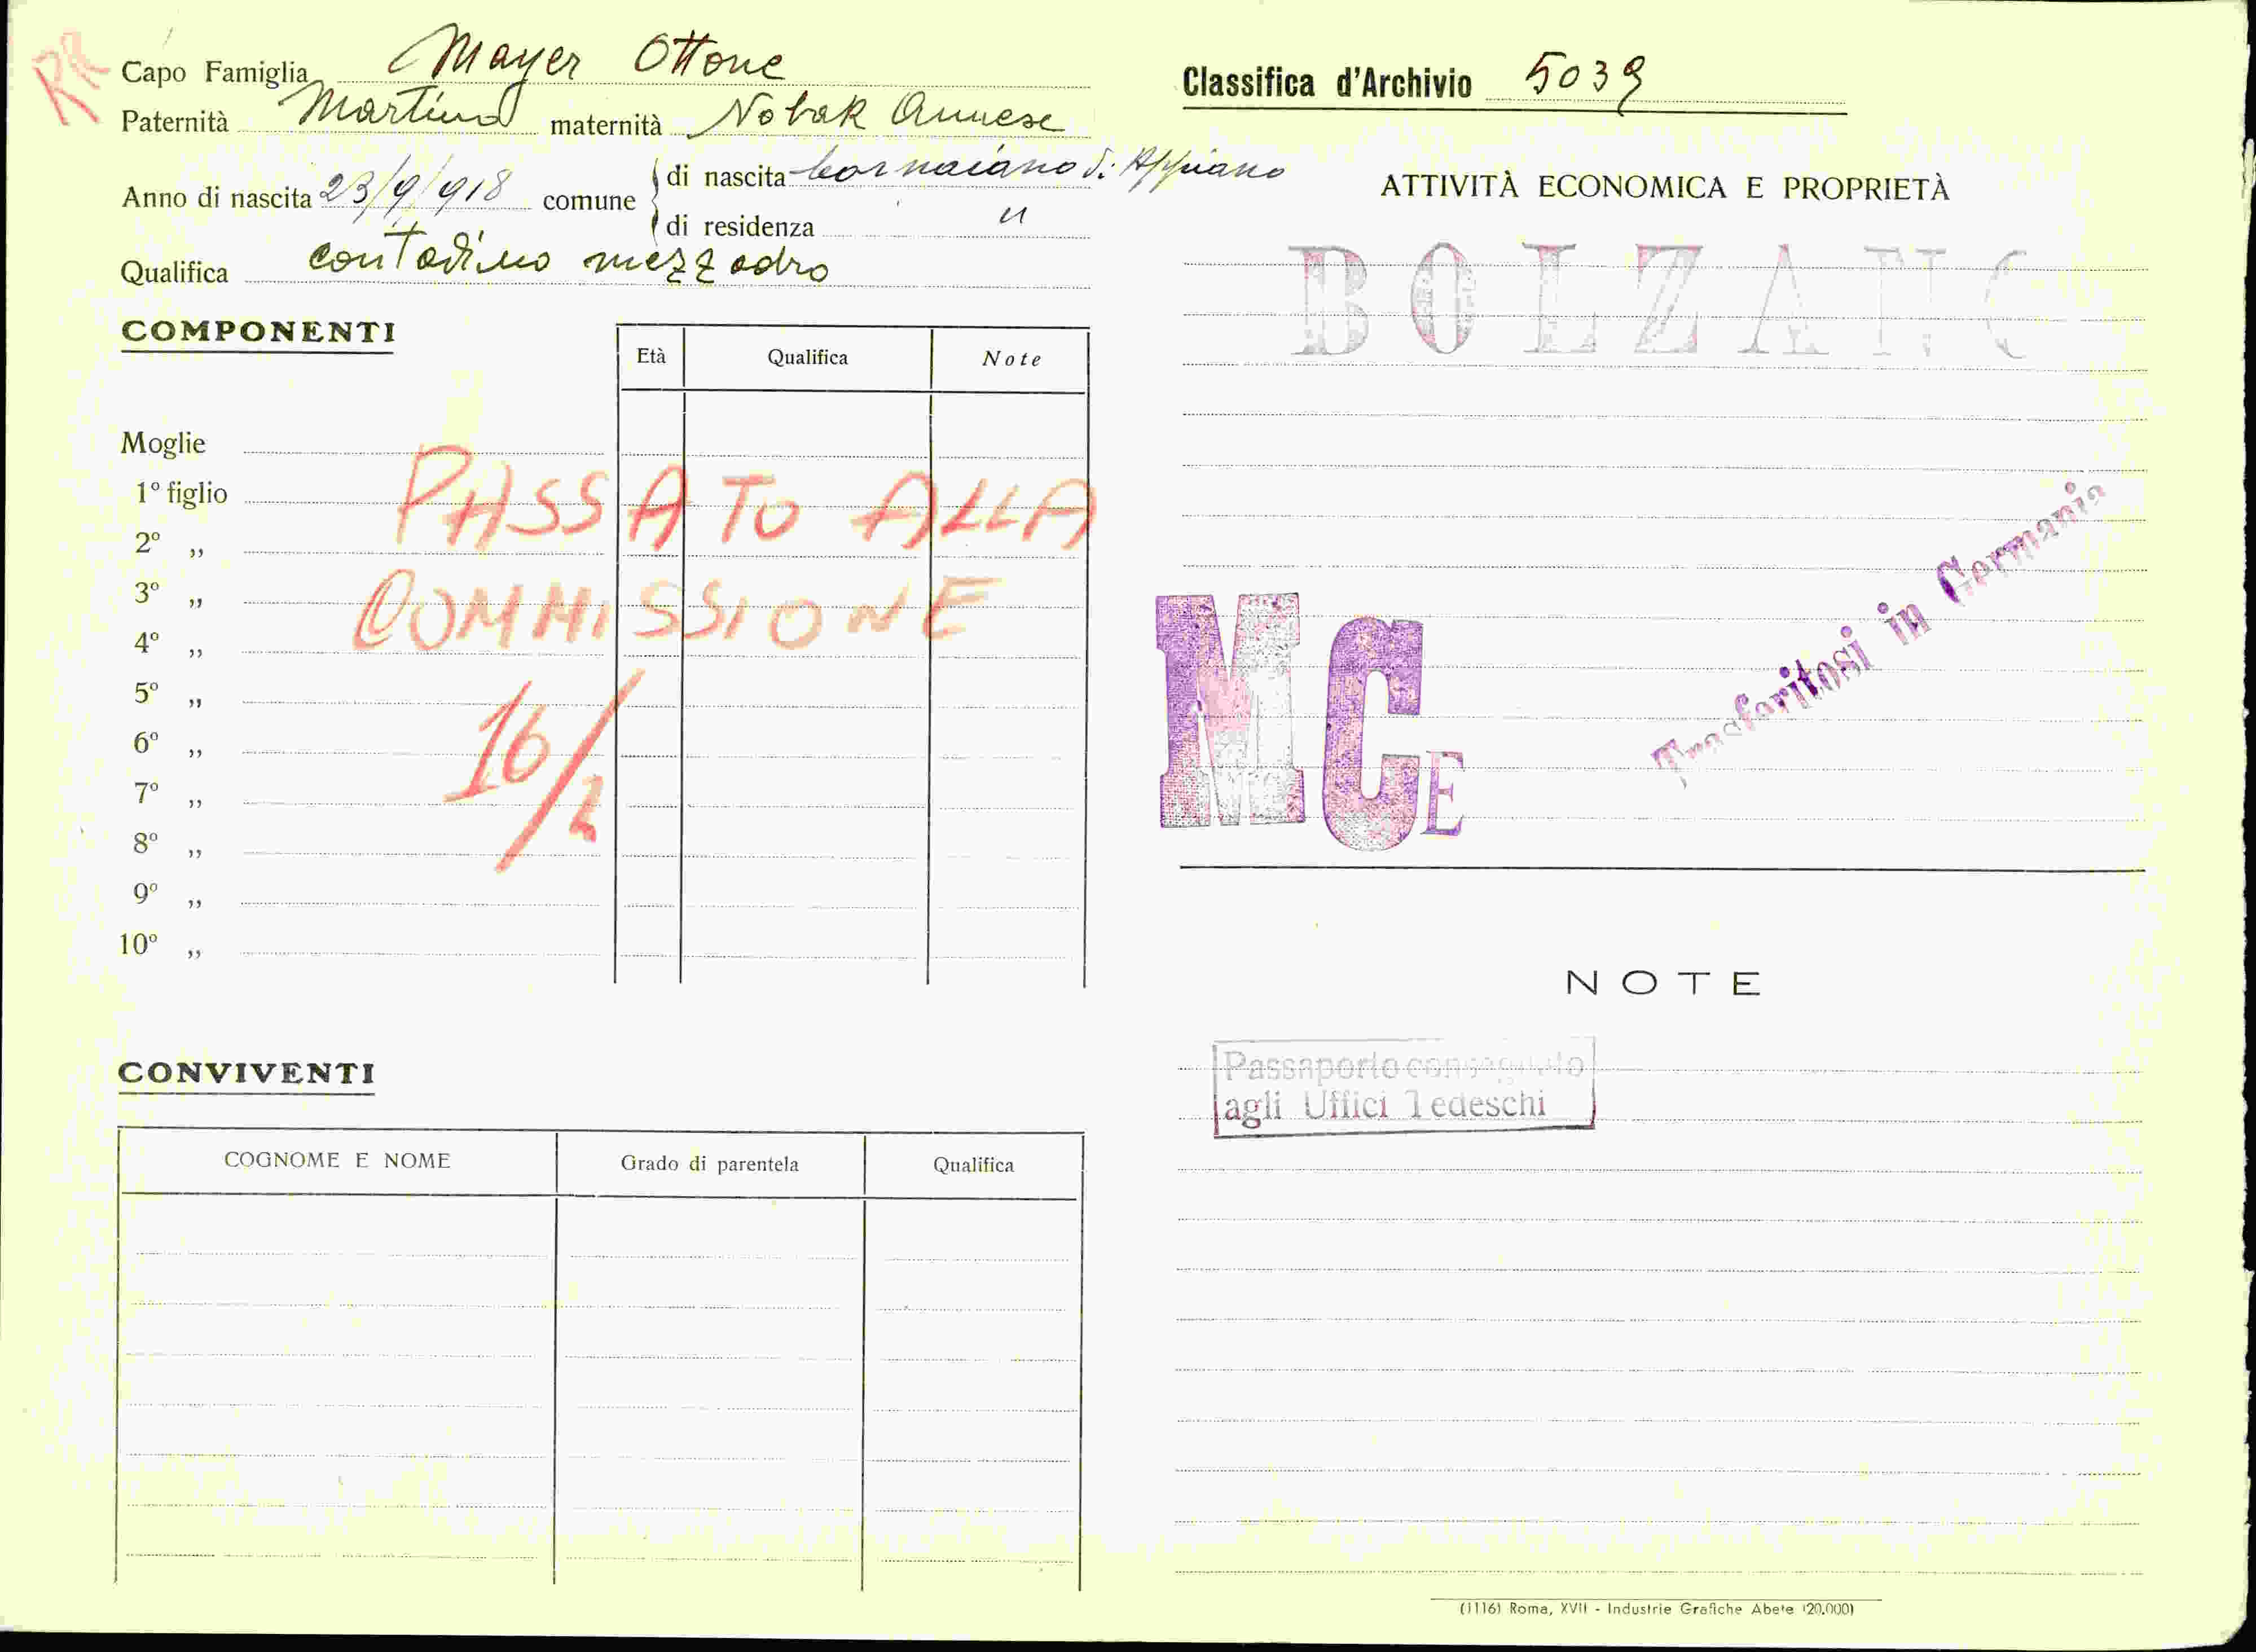 RR
Capo Famiglia Mayer Ottone
Paternità Martino maternità Nobak Annese
Anno di nascita 23/9/918 comune
di nascita Cornaiano di Appiano
di residenza "
Qualifica contadino mezzadro
COMPONENTI
Età Qualifica Note
Moglie
1º figlio
2º „
3º „
4º „
5º „
6º „
7º „
8º „
9º „
10º „
PASSATO ALLA
COMMISSIONE
16/2
CONVIVENTI
COGNOME E NOME Grado di parentela Qualifica
Classifica d'Archivio 5039
ATTIVITÀ ECONOMICA E PROPRIETÀ
BOLZANO
Trasferitosi in Germania
MCE
NOTE
Passaporto consegnato
agli Uffici Tedeschi
(1116) Roma, XVII - Industrie Grafiche Abete (20.000)